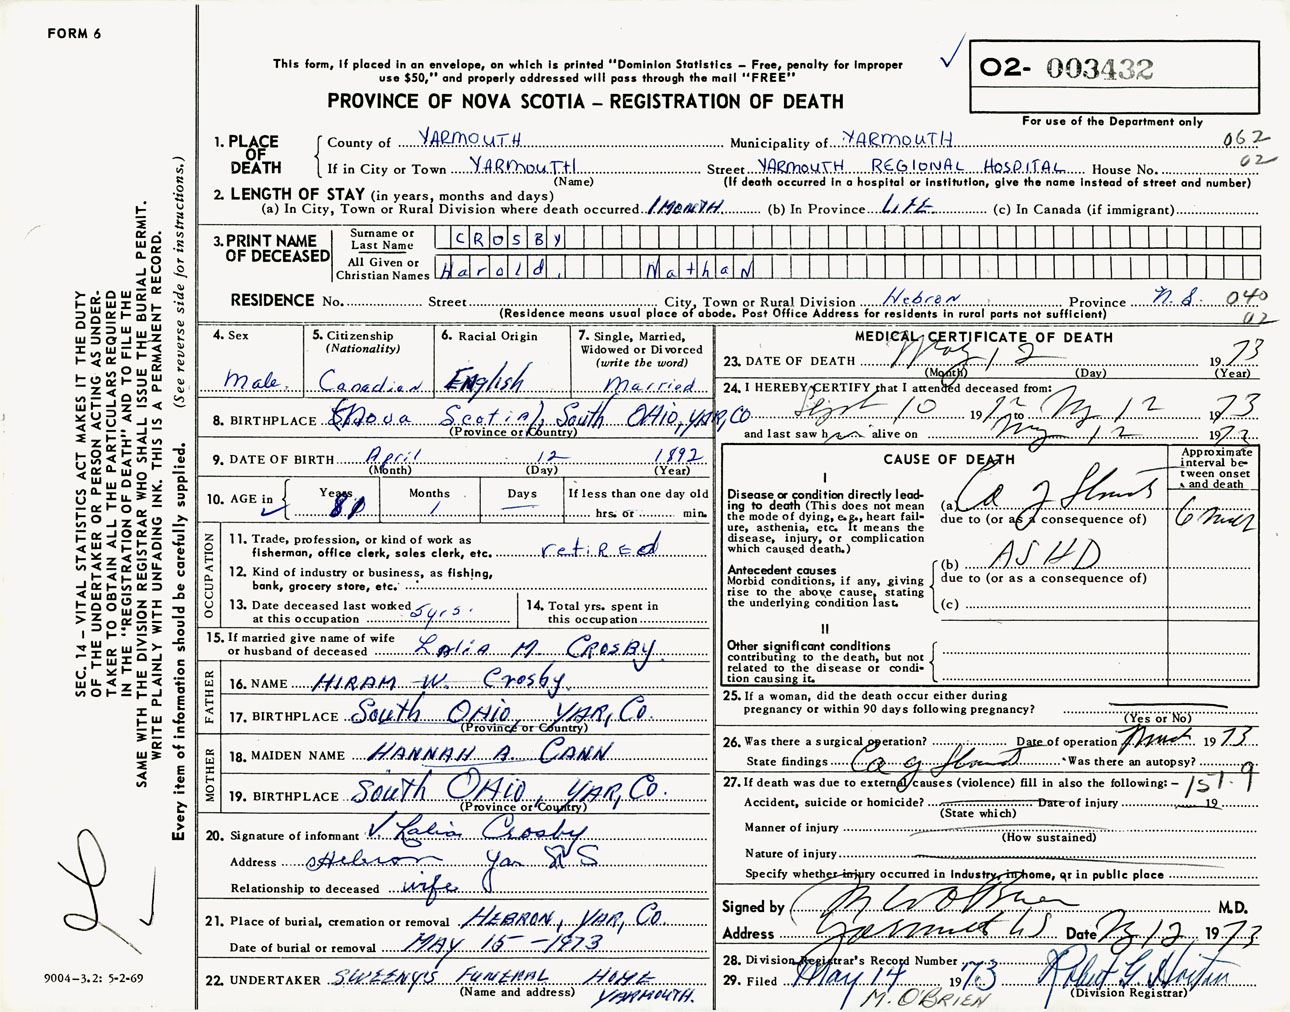 FORM 6
This form, if placed in an envelope, on which is printed "Dominion Statistics – Free, penalty for improper
use $50," and properly addressed will pass through the mail "FREE"
PROVINCE OF NOVA SCOTIA – REGISTRATION OF DEATH
O2- 003432
For use of the Department only
1. PLACE OF DEATH
County of YARMOUTH Municipality of YARMOUTH 062
If in City or Town YARMOUTH Street YARMOUTH REGIONAL HOSPITAL House No. 02
(Name) (If death occurred in a hospital or institution, give the name instead of street and number)
2. LENGTH OF STAY (in years, months and days)
(a) In City, Town or Rural Division where death occurred 1 MONTH (b) In Province LIFE (c) In Canada (if immigrant)
3. PRINT NAME OF DECEASED
Surname or Last Name CROSBY
All Given or Christian Names Harold, Nathan
RESIDENCE No. Street City, Town or Rural Division Hebron Province N.S. 040
(Residence means usual place of abode. Post Office Address for residents in rural parts not sufficient) 02
4. Sex
Male
5. Citizenship
(Nationality)
Canadian
6. Racial Origin
English
7. Single, Married,
Widowed or Divorced
(write the word)
Married
8. BIRTHPLACE (Nova Scotia), South OHio, YAR, CO
(Province or Country)
9. DATE OF BIRTH April 12 1892
(Month) (Day) (Year)
10. AGE in
Years Months Days If less than one day old
81 1 — hrs. or min.
OCCUPATION
11. Trade, profession, or kind of work as
fisherman, office clerk, sales clerk, etc. retiREd
12. Kind of industry or business, as fishing,
bank, grocery store, etc.
13. Date deceased last worked
at this occupation 5 yrs.
14. Total yrs. spent in
this occupation
15. If married give name of wife
or husband of deceased Lalia M CROSBY
FATHER
16. NAME HIRAM W. Crosby.
17. BIRTHPLACE South OHio, YAR, Co.
(Province or Country)
MOTHER
18. MAIDEN NAME HANNAH A. CANN
19. BIRTHPLACE South OHio, YAR, Co.
(Province or Country)
20. Signature of informant Lalia Crosby
Address Hebron Yar NS
Relationship to deceased wife
21. Place of burial, cremation or removal HEBRON, YAR, CO.
Date of burial or removal MAY 15 – 1973
22. UNDERTAKER SWEENY'S FUNERAL HOME
(Name and address) YARMOUTH.
MEDICAL CERTIFICATE OF DEATH
23. DATE OF DEATH May 12 1973
(Month) (Day) (Year)
24. I HEREBY CERTIFY that I attended deceased from:
Sept 10 1972 to My 12 1973
and last saw him alive on My 12 197
CAUSE OF DEATH
Approximate
interval be-
tween onset
and death
I
Disease or condition directly lead-
ing to death (This does not mean
the mode of dying, e.g., heart fail-
ure, asthenia, etc. It means the
disease, injury, or complication
which caused death.)
(a) Ca of
due to (or as a consequence of)
6
Antecedent causes
Morbid conditions, if any, giving
rise to the above cause, stating
the underlying condition last.
(b) ASHD
due to (or as a consequence of)
(c)
II
Other significant conditions
contributing to the death, but not
related to the disease or condi-
tion causing it.
25. If a woman, did the death occur either during
pregnancy or within 90 days following pregnancy?
(Yes or No)
26. Was there a surgical operation? Date of operation 1973
State findings Ca of Was there an autopsy?
27. If death was due to external causes (violence) fill in also the following: – 151.9
Accident, suicide or homicide? Date of injury 19
(State which)
Manner of injury
(How sustained)
Nature of injury
Specify whether injury occurred in industry, in home, or in public place
Signed by M O'Brien M.D.
Address Yarmouth NS Date My 12 1973
28. Division Registrar's Record Number
29. Filed May 14 1973 Robert G. Horton
(Division Registrar)
M. O'BRIEN
SEC. 14 – VITAL STATISTICS ACT MAKES IT THE DUTY
OF THE UNDERTAKER OR PERSON ACTING AS UNDER-
TAKER TO OBTAIN ALL THE PARTICULARS REQUIRED
IN THE "REGISTRATION OF DEATH" AND TO FILE THE
SAME WITH THE DIVISION REGISTRAR WHO SHALL ISSUE THE BURIAL PERMIT.
WRITE PLAINLY WITH UNFADING INK. THIS IS A PERMANENT RECORD.
Every item of information should be carefully supplied. (See reverse side for instructions.)
9004–3.2: 5-2-69